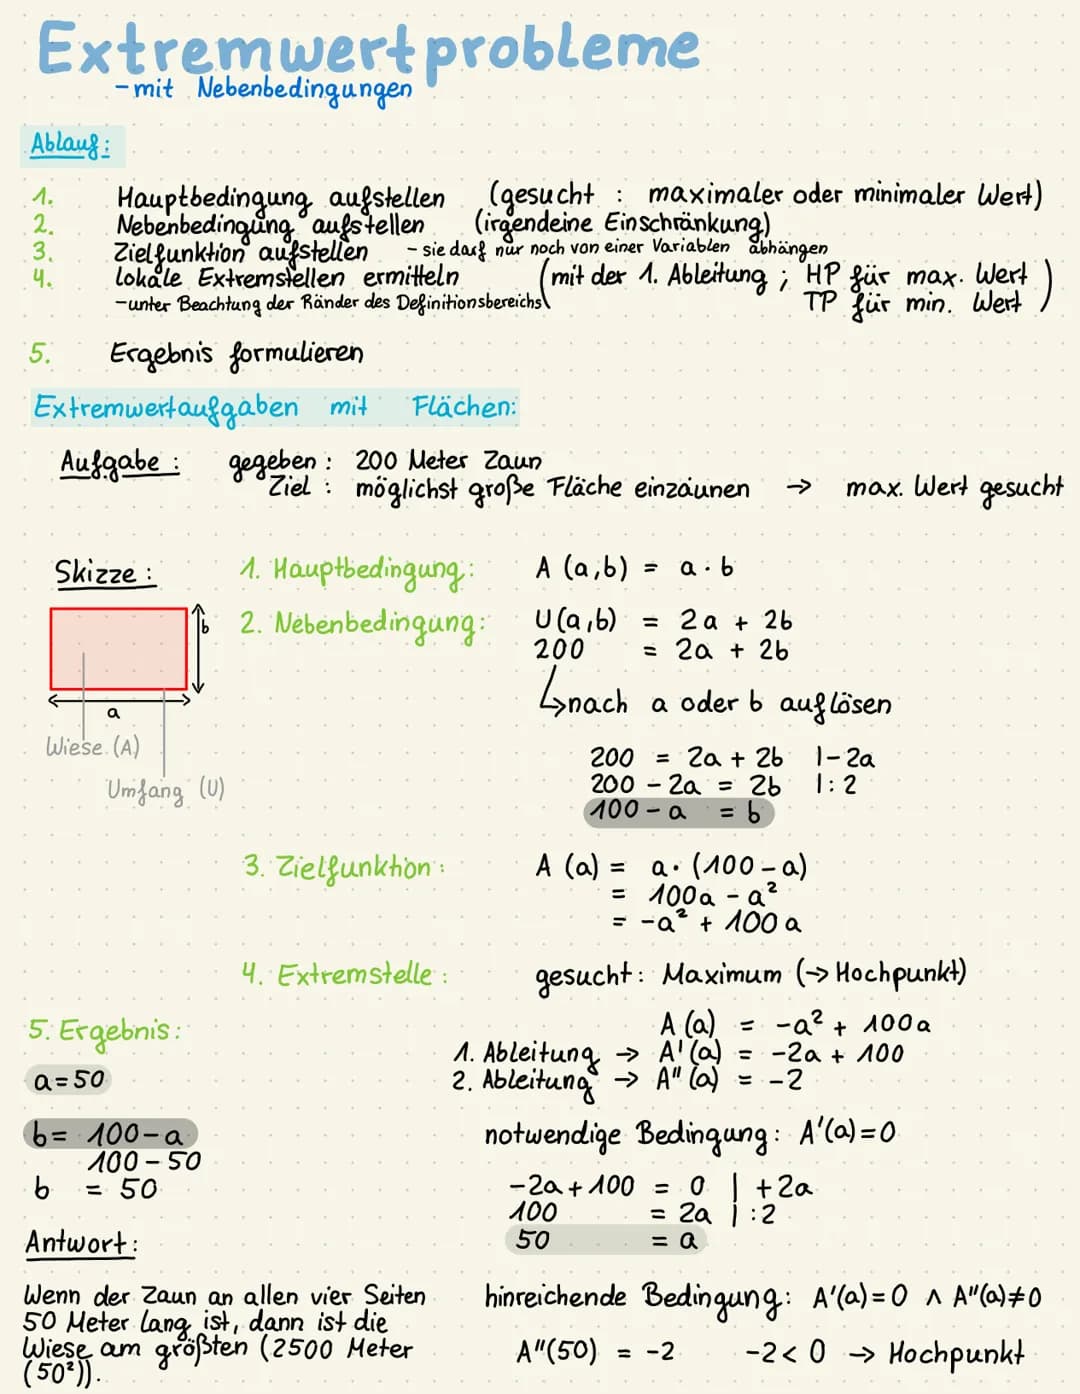 Extremwertprobleme
-mit Nebenbedingungen
Ablauf:
1. Hauptbedingung aufstellen (gesucht : maximaler oder minimaler Wert)
2. Nebenbedingung aufstellen (irgendeine Einschränkung)
3. Zielfunktion aufstellen - sie darf nur noch von einer Variablen abhängen
4. lokale Extremstellen ermitteln (mit der 1. Ableitung ; HP für max. Wert
-unter Beachtung der Ränder des Definitionsbereichs TP für min. Wert )
5. Ergebnis formulieren
Extremwertaufgaben mit Flächen:
Aufgabe : gegeben : 200 Meter Zaun
Ziel : möglichst große Fläche einzäunen → max. Wert gesucht
Skizze :
b
a
Wiese (A)
Umfang (U)
1. Hauptbedingung: A (a,b) = a · b
2. Nebenbedingung: U (a,b) = 2a + 2b
200 = 2a + 2b
↳nach a oder b auflösen
200 = 2a + 2b |-2a
200 - 2a = 2b |: 2
100 - a = b
3. Zielfunktion : A (a) = a · (100 - a)
= 100a - a²
= -a² + 100 a
4. Extremstelle : gesucht : Maximum (→ Hochpunkt)
A (a) = -a² + 100a
1. Ableitung → A' (a) = -2a + 100
2. Ableitung → A" (a) = -2
notwendige Bedingung: A'(a) = 0
-2a + 100 = 0 | +2a
100 = 2a | :2
50 = a
hinreichende Bedingung: A'(a) = 0 ∧ A"(a) ≠ 0
A"(50) = -2 -2 < 0 → Hochpunkt
5. Ergebnis:
a = 50
b = 100 - a
100 - 50
b = 50
Antwort:
Wenn der Zaun an allen vier Seiten
50 Meter lang ist, dann ist die
Wiese am größten (2500 Meter
(50²)).